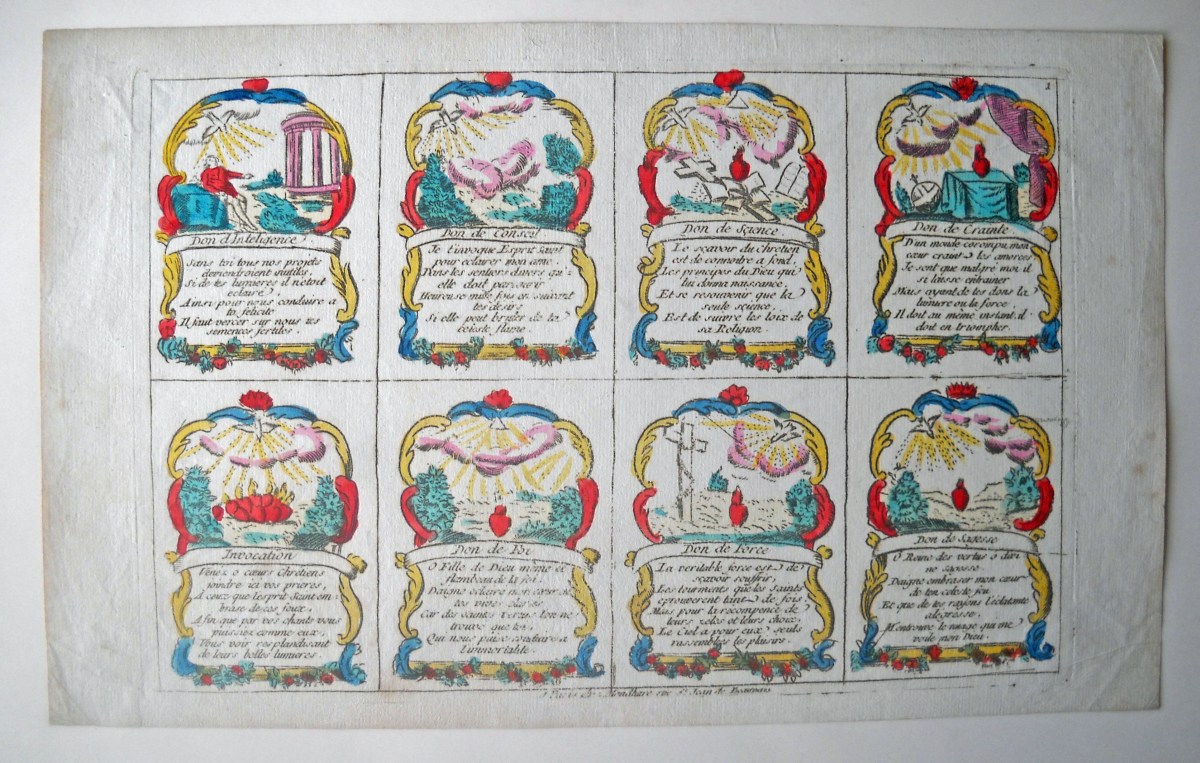 1
Don d'Inteligence
Sans toi tous nos projets
deviendroient inutiles,
Si de tes lumieres il n'etoit
eclairé
Ainsi pour nous conduire a
ta felicité
Il faut verser sur nous tes
semences fertiles.
Don de Conseil
Je t'invoque Esprit Saint
pour eclairer mon ame
Dans les sentiers divers qu'
elle doit parcourir
Heureuse mille fois en suivant
tes desirs
Si elle peut bruler de ta
celeste flame.
Don de Sçience
Le sçavoir du chretien
est de connoitre a fond,
Les principes du Dieu qui
lui donna naissance,
Et se resouvenir que la
seule science,
Est de suivre les loix de
sa Religion.
Don de Crainte
D'un monde corompu, mon
cœur craint les amorces
Je sent que malgré moi il
si laisse entrainer
Mais ayant de tes dons la
lumiere ou la force
Il doit au même instant, il
doit en triompher.
Invocation
Venez o cœurs Chrétiens
joindre ici vos prieres,
A ceux que l'esprit Saint em-
brase de ces feux,
Afin que par vos chants vous
puissiez comme eux,
Vous voir resplandisant
de leurs belles lumieres.
Don de Foi
O Fille de Dieu même et
flambeau de la foi,
Daigne eclairer mon cœur de
tes vives
Car des saints vertus l'on ne
trouve que toi
Qui nous puise conduire a
l'immortalité.
Don de Force
La veritable force est de
sçavoir souffrir,
Les tourments que les saints
eprouverent tant de fois
Mais pour la recompence de
leurs zeles et leurs choix,
Le Ciel a pour eux seuls
rassemblés les plaisirs.
Don de Sagesse
O Reine des vertus o divi
ne sagesse
Daigne embraser mon cœur
de ton celeste feu
Et que de tes rayons l'eclatante
alegresse
M'entrouve le nuage qui me
voile mon Dieu.
A Paris chez Mondhare rue St. Jean de Beauvais